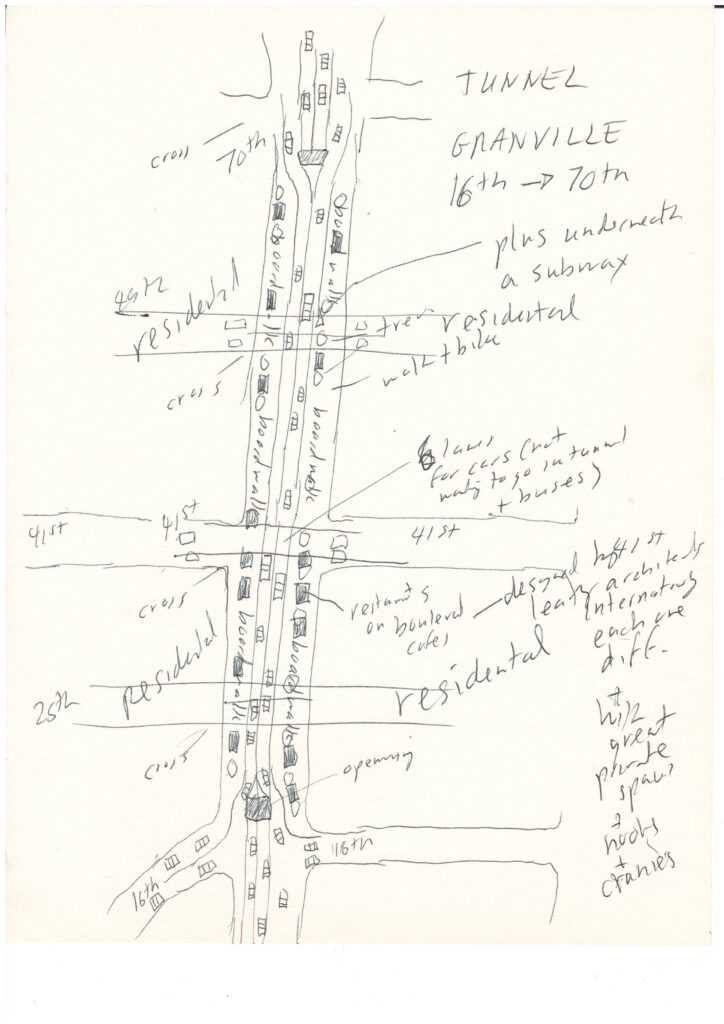 TUNNEL
GRANVILLE
16th → 70th
cross
70th
board walk
boardwalk
plus underneath
a subway
49th
residental
residental
walk + bike
cross
boardwalk
boardwalk
6 lanes
for cars (not
to go in tunnel
+ buses)
41st
41st
41st
cross
resturants
on boulevard
cafes
architects
each are
diff.
residental
residental
boardwalk
boardwalk
25th
cross
opening
+
great
private
spaces
+
nooks
+
16th
16th